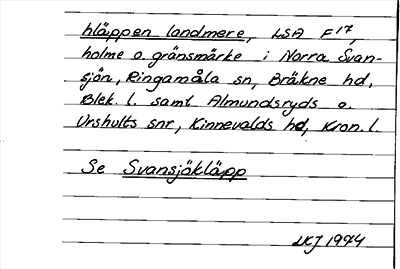 hläppen landmere, LSA F17,
holme o. gränsmärke i Norra Svan-
sjön, Ringamåla sn, Bräkne hd,
Blek. l. samt Almundsryds o.
Urshults snr, Kinnevalds hd, Kron. l.
Se Svansjökläpp
LKJ 1974